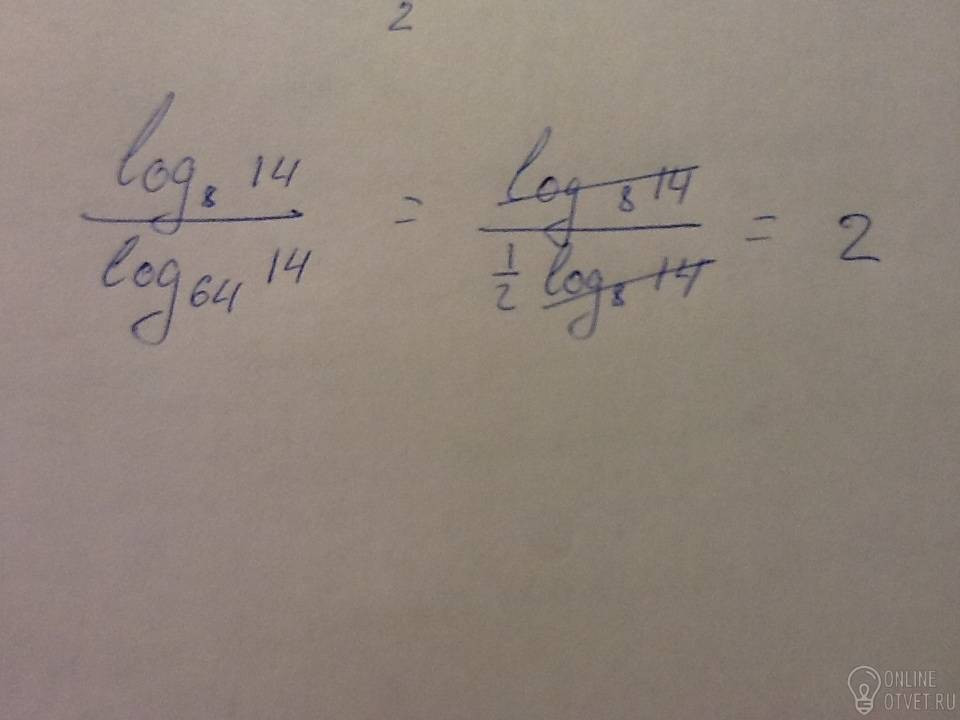 2
log₈ 14 / log₆₄ 14 = log₈ 14 / ½ log₈ 14 = 2
ONLINE
OTVET.RU